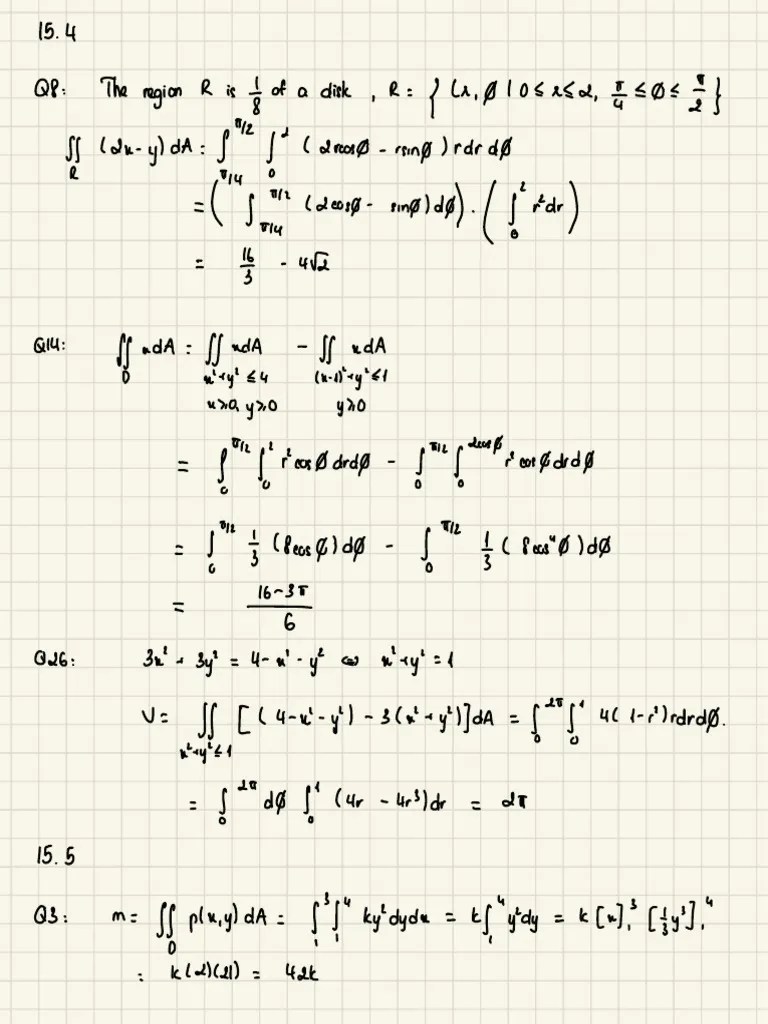 15.4
Q8: The region R is 1/8 of a disk, R: {(r, ø | 0 ≤ r ≤ 2, π/4 ≤ ø ≤ π/2}
∬_R (2x - y) dA : ∫_{π/4}^{π/2} ∫_0^2 (2rcosø - rsinø) r dr dø
= (∫_{π/4}^{π/2} (2cosø - sinø) dø) · (∫_0^2 r² dr)
= 16/3 - 4√2
Q14: ∬_D x dA : ∬_{x²+y² ≤ 4, x ≥ 0, y ≥ 0} x dA - ∬_{(x-1)²+y² ≤ 1, y ≥ 0} x dA
= ∫_0^{π/2} ∫_0^2 r² cosø dr dø - ∫_0^{π/2} ∫_0^{2cosø} r² cosø dr dø
= ∫_0^{π/2} 1/3 (8cosø) dø - ∫_0^{π/2} 1/3 (8cos⁴ø) dø
= (16 - 3π)/6
Q26: 3x² + 3y² = 4 - x² - y² ⇔ x² + y² = 1
V = ∬_{x²+y² ≤ 1} [(4 - x² - y²) - 3(x² + y²)] dA = ∫_0^{2π} ∫_0^1 4(1 - r²) r dr dø.
= ∫_0^{2π} dø ∫_0^1 (4r - 4r³) dr = 2π
15.5
Q3: m = ∬_D ρ(x,y) dA = ∫_1^3 ∫_1^4 ky² dy dx = k ∫_1^4 y² dy = k [x]_1^3 [1/3 y³]_1^4
: k(2)(21) = 42k